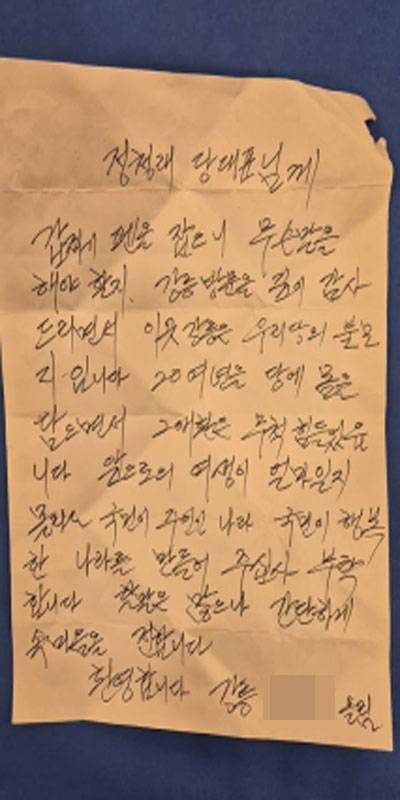 정청래 당대표님께
갑짜기 펜을 잡으니 무슨말을
해야 할지. 강릉방문을 깊이 감사
드리면서 이곳 강릉은 우리당의 불모
지 입니다 20여년을 당에 몸을
담으면서 그애환은 무척 힘들었읍
니다 앞으로의 여생이 얼마일지
몰라도 국민이 주인인 나라 국민이 행복
한 나라를 만들어 주십사 부탁
합니다 할말은 많으나 간단하게
속마음을 전합니다
환영합니다 강릉 올림